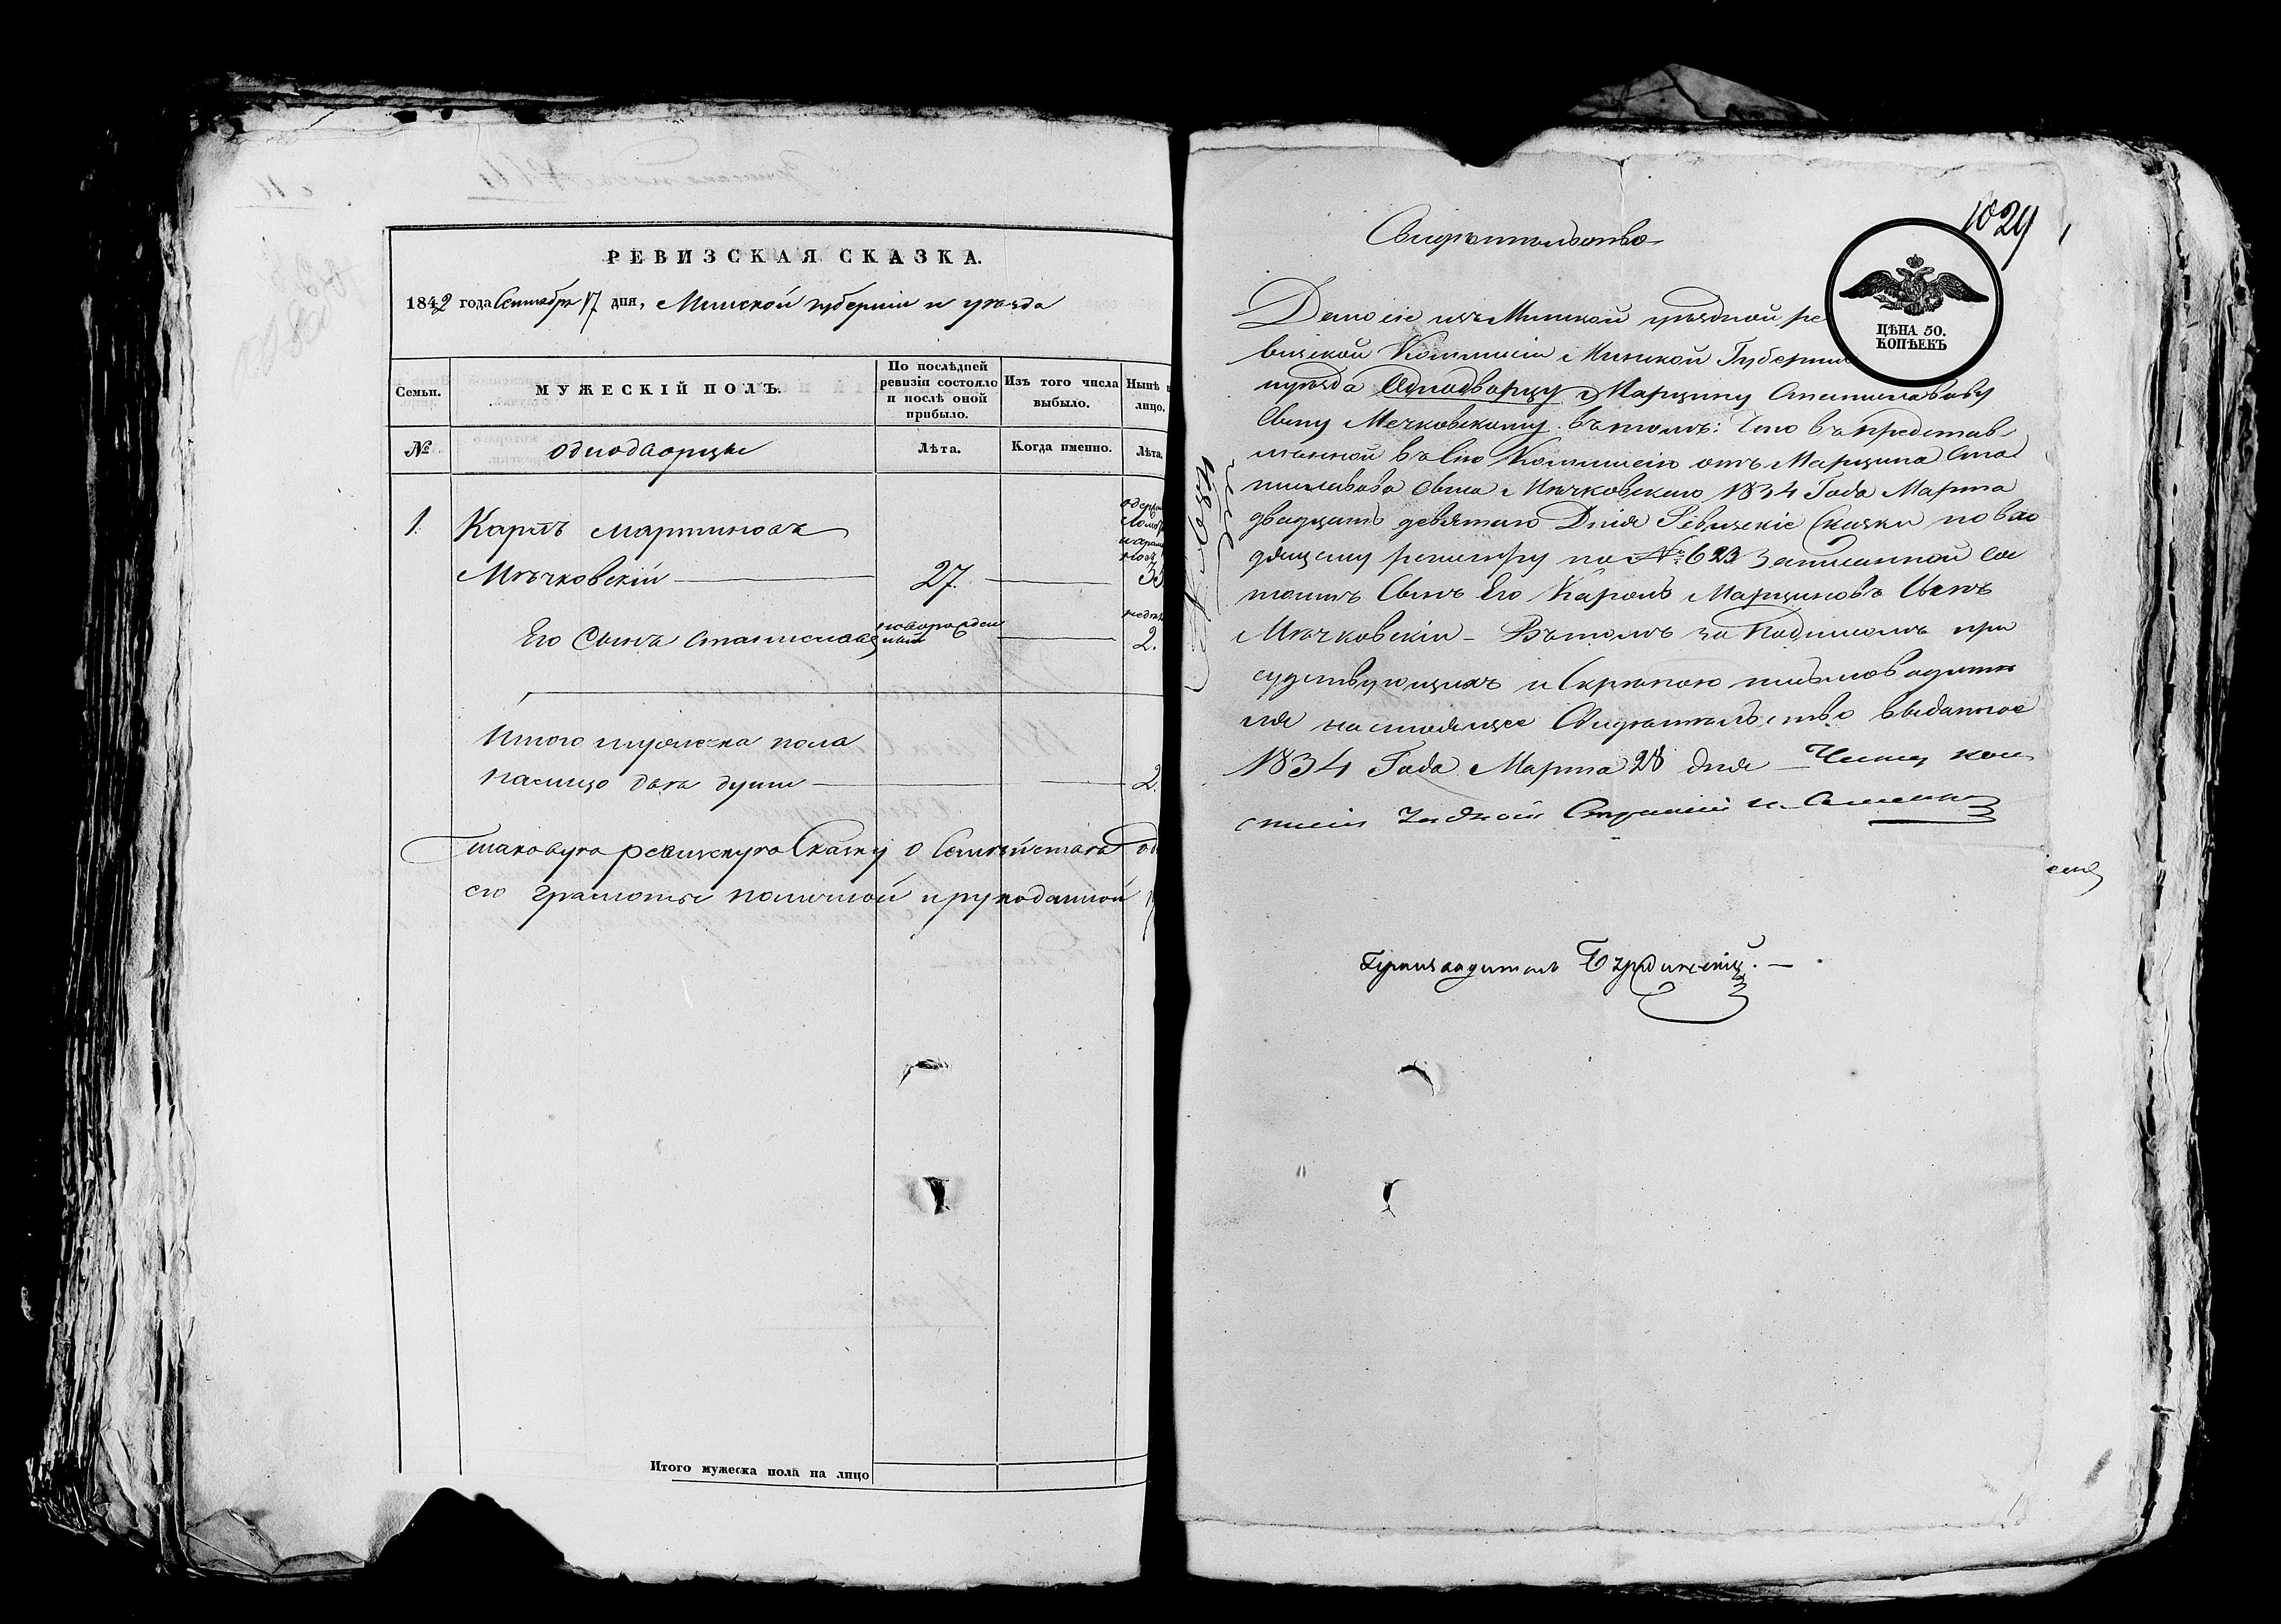 РЕВИЗСКАЯ СКАЗКА.
1842 года Сентября 17 дня, Минской губерніи и уезда
Семьи.
МУЖЕСКІЙ ПОЛЪ.
По послѣдней ревизіи состояло и послѣ оной прибыло.
Изъ того числа выбыло.
Нынѣ
лицо.
№
однодворцы
Лѣта.
Когда именно.
Лѣта.
1. Карлъ Мартиновъ
Мѣчковскій 27. 35
Его Сынъ Станиславъ новорожден
ный 2.
Итого мужеска пола
налицо два души 2.
Таковую ревизскую Сказку о Семѣйствѣ
его грамоты польской и рукоданной
Итого мужеска пола на лицо
1029
ЦѢНА 50.
КОПѢЕКЪ
Свидѣтельство
Дано сіе изъ Минской уѣздной ре
визской Коммисіи Минской Губерніи
и уѣзда Однодворцу Марцину Станиславову
Сыну Мечковскому въ томъ: Что въ представ
ленной въ сію Коммисію отъ Марцина Ста
ниславова Сына Мѣчковского 1834 Года Марта
двадцать девятаго Дня Ревизскіе Сказки по вхо
дящему регистру по № 623 Записанной со
тоитъ Сынъ Его Кароль Марциновъ Сынъ
Мѣчковскій – Въ томъ за Подписомъ при
судствующихъ и Скрѣпою письмоводите
ля настоящее Свидѣтельство выданное
1834 Года Марта 28 дня – Членъ ком
мисіи
Письмоводитель